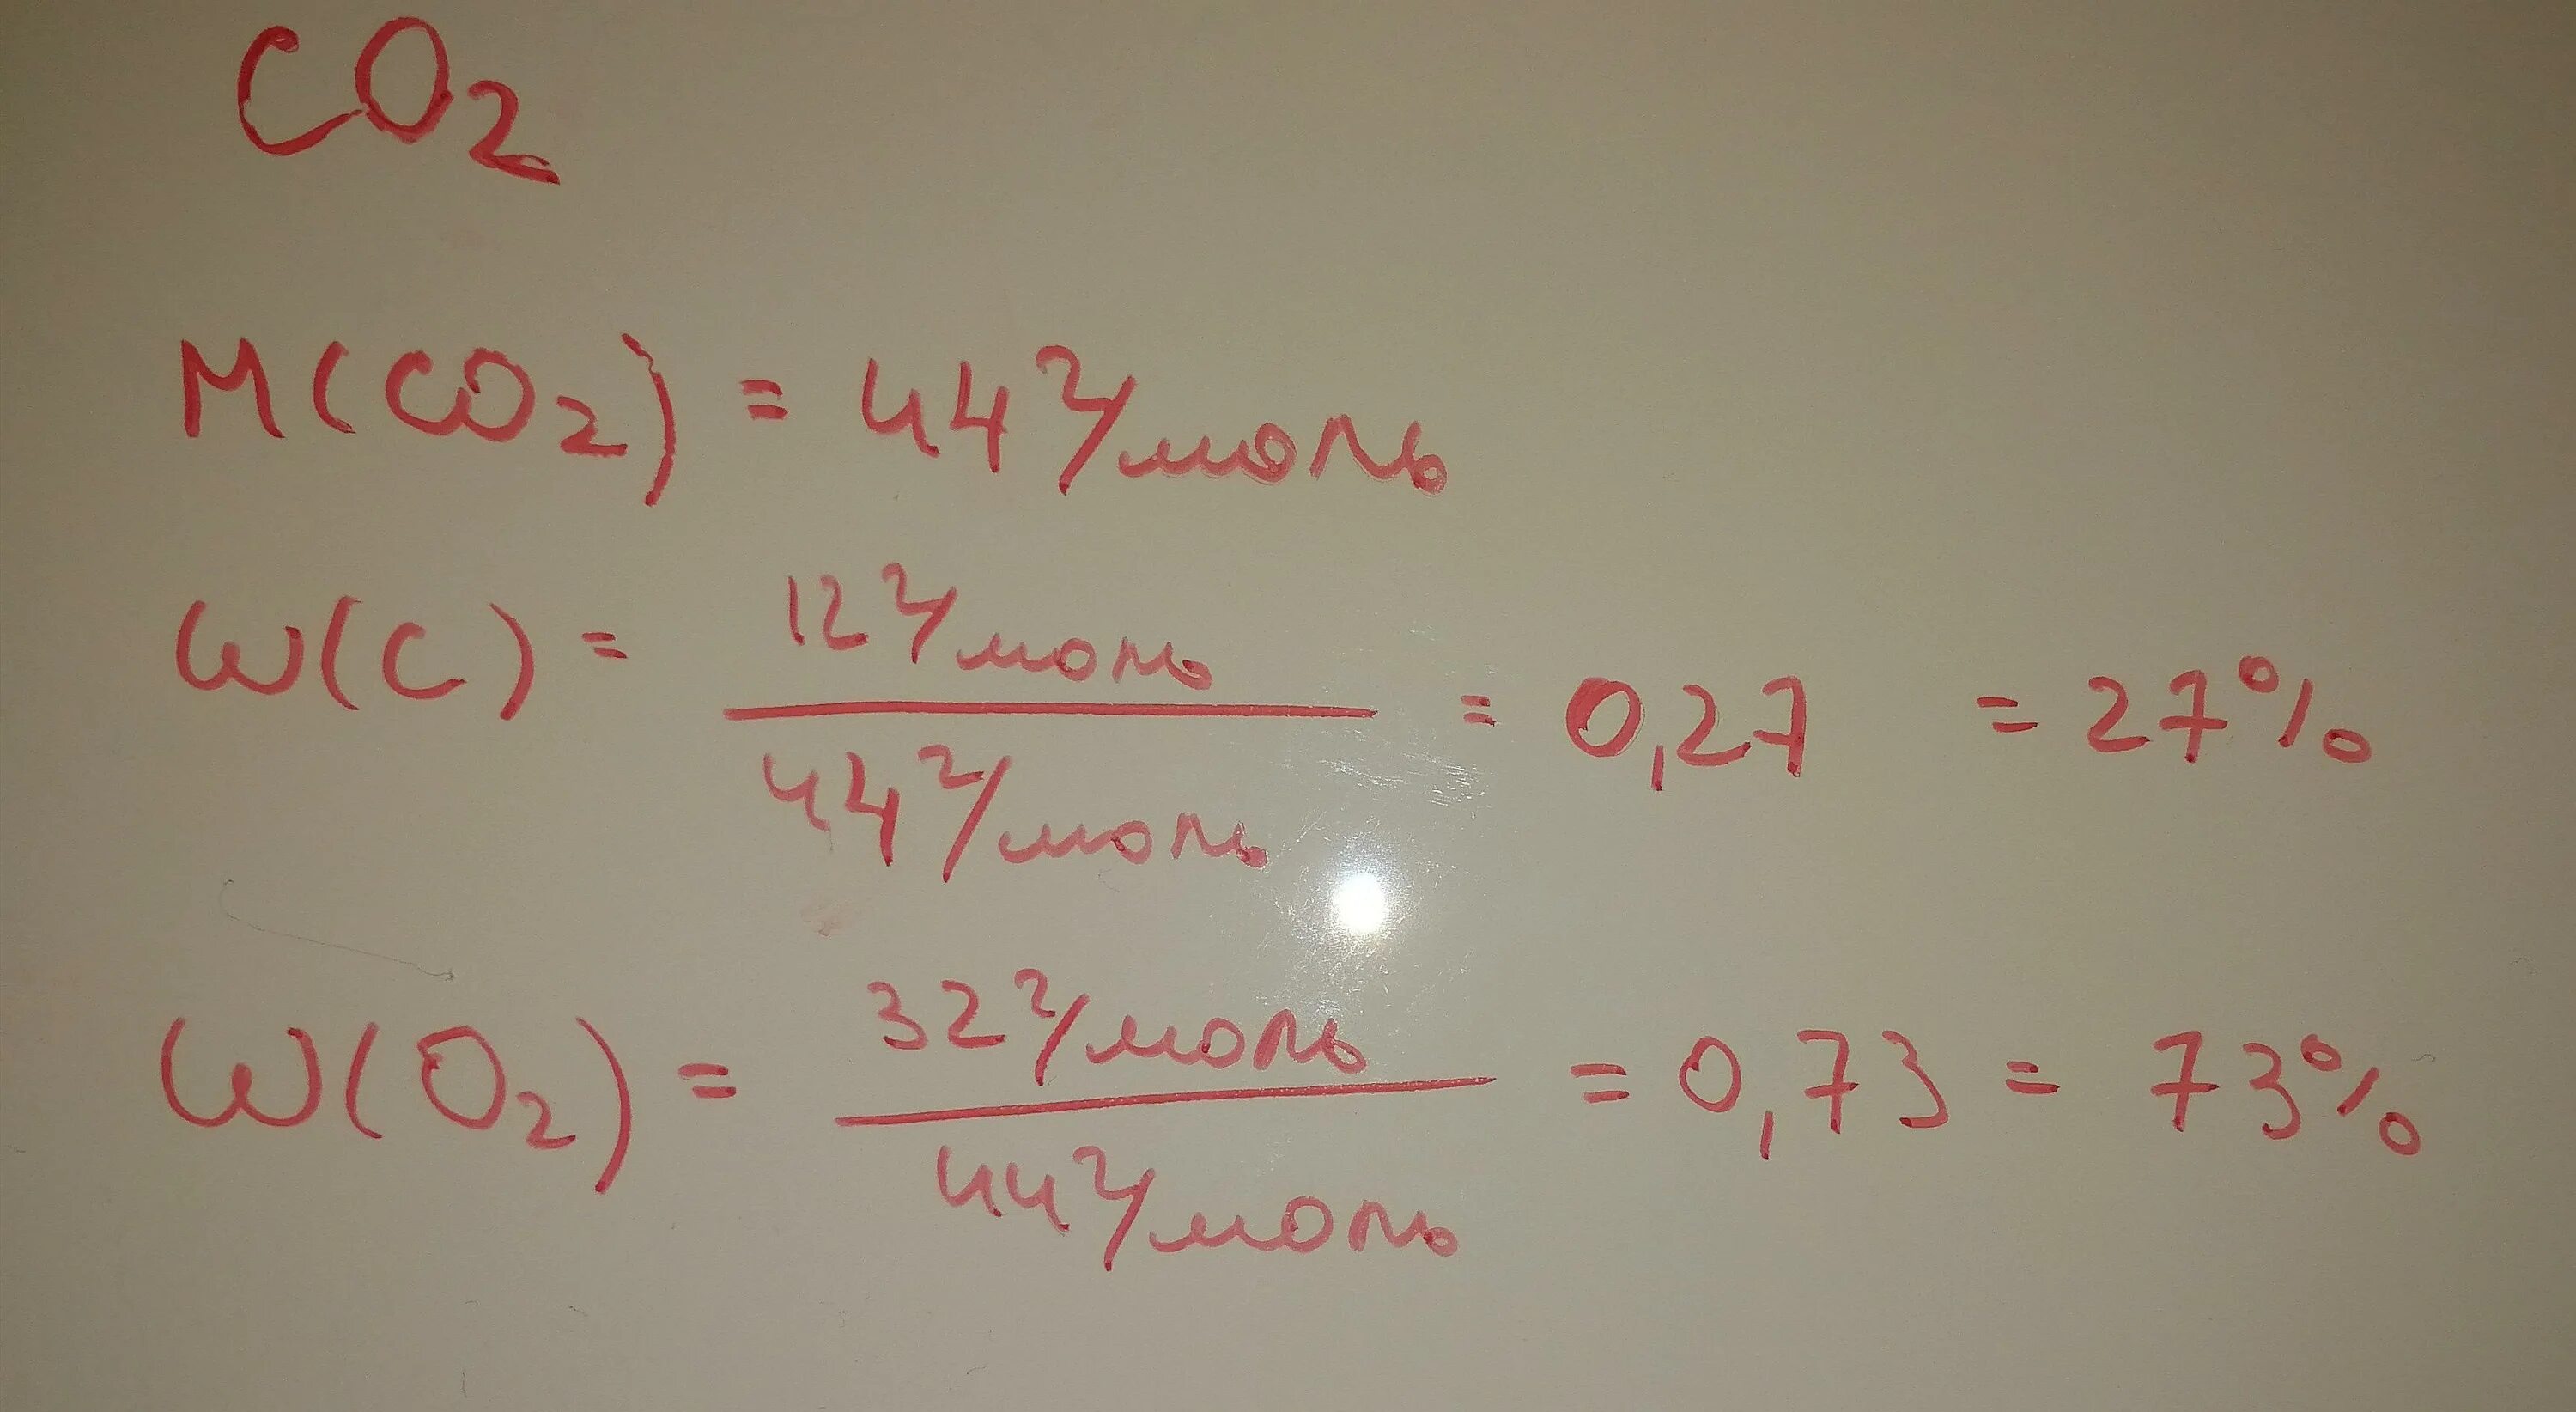 CO₂
M(CO₂) = 44 г/моль
W(C) = 12 г/моль / 44 г/моль = 0,27 = 27%
W(O₂) = 32 г/моль / 44 г/моль = 0,73 = 73%